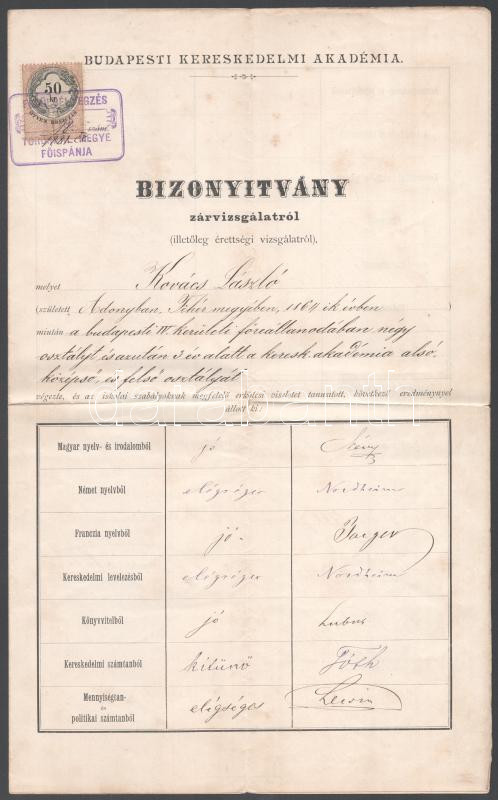 BUDAPESTI KERESKEDELMI AKADÉMIA.
50
kr
FŐISPÁNJA
BIZONYITVÁNY
zárvizsgálatról
(illetőleg érettségi vizsgálatról),
melyet Kovács László
(született Adonyban, Fehér megyében, 1864 ik évben )
miután a budapesti IV. kerületi főreáltanodában négy
osztályt is azután 3 év alatt a keresk. akadémia alsó,
középső, és felső osztályát
végezte, és az iskolai szabályoknak megfelelő erkölcsi viseletet tanusított, következő eredménynyel
állott ki:
Magyar nyelv- és irodalomból jó
Német nyelvből elégséges Nordheim
Franczia nyelvből jó.
Kereskedelmi levelezésből elégséges Nordheim
Könyvvitelből jó
Kereskedelmi számtanból kitünő Tóth
Mennyiségtan-
és
politikai számtanból elégséges